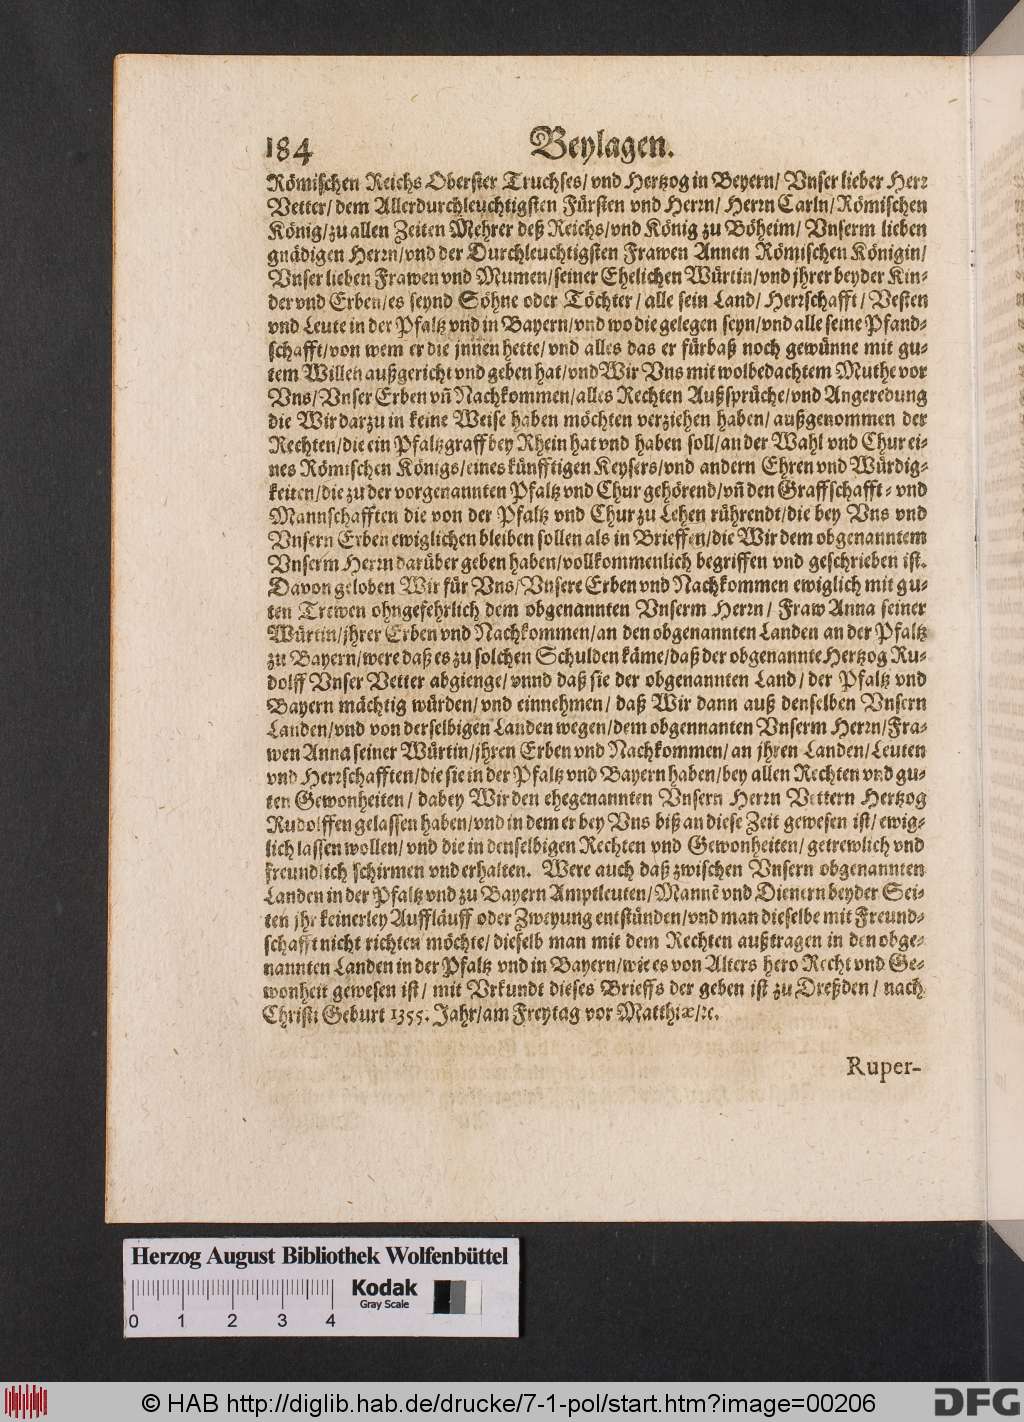 184 Beylagen.
Römischen Reichs Oberster Truchses/ vnd Hertzog in Beyern/ Vnser lieber Herr
Vetter/ dem Allerdurchleuchtigsten Fürsten vnd Herrn/ Herrn Carln/ Römischen
König/ zu allen Zeiten Mehrer deß Reichs/ vnd König zu Böheim/ Vnserm lieben
gnädigen Herrn/ vnd der Durchleuchtigsten Frawen Annen Römischen Königin/
Vnser lieben Frawen vnd Mumen/ seiner Ehelichen Würtin/ vnd jhrer beyder Kin-
der vnd Erben/ es seynd Söhne oder Töchter/ alle sein Land/ Herrschafft/ Vesten
vnd Leute in der Pfaltz vnd in Bayern/ vnd wo die gelegen seyn/ vnd alle seine Pfand-
schafft/ von wem er die jnnen hette/ vnd alles das er fürbaß noch gewünne mit gu-
tem Willen außgericht vnd geben hat/ vnd Wir Vns mit wolbedachtem Muthe vor
Vns/ Vnser Erben vñ Nachkommen/ alles Rechten Außsprüche/ vnd Angeredung
die Wir darzu in keine Weise haben möchten verziehen haben/ außgenommen der
Rechten/ die ein Pfaltzgraff bey Rhein hat vnd haben soll/ an der Wahl vnd Chur ei-
nes Römischen Königs/ eines künfftigen Keysers/ vnd andern Ehren vnd Würdig-
keiten/ die zu der vorgenannten Pfaltz vnd Chur gehörend/ vñ den Graffschafft- vnd
Mannschafften die von der Pfaltz vnd Chur zu Lehen rührendt/ die bey Vns vnd
Vnsern Erben ewiglichen bleiben sollen als in Brieffen/ die Wir dem obgenanntem
Vnserm Herrn darüber geben haben/ vollkommenlich begriffen vnd geschrieben ist.
Davon geloben Wir für Vns/ Vnsere Erben vnd Nachkommen ewiglich mit gu-
ten Trewen ohngefehrlich dem obgenannten Vnserm Herrn/ Fraw Anna seiner
Würtin/ jhrer Erben vnd Nachkommen/ an den obgenannten Landen an der Pfaltz
zu Bayern/ were daß es zu solchen Schulden käme/ daß der obgenannte Hertzog Ru-
dolff Vnser Vetter abgienge/ vnnd daß sie der obgenannten Land/ der Pfaltz vnd
Bayern mächtig würden/ vnd einnehmen/ daß Wir dann auß denselben Vnsern
Landen/ vnd von derselbigen Landen wegen/ dem obgennanten Vnserm Herrn/ Fra-
wen Anna seiner Würtin/ jhren Erben vnd Nachkommen/ an jhren Landen/ Leuten
vnd Herrschafften/ die sie in der Pfaltz vnd Bayern haben/ bey allen Rechten vnd gu-
ten Gewonheiten/ dabey Wir den ehegenannten Vnsern Herrn Vettern Hertzog
Rudolffen gelassen haben/ vnd in dem er bey Vns biß an diese Zeit gewesen ist/ ewig-
lich lassen wollen/ vnd die in denselbigen Rechten vnd Gewonheiten/ getrewlich vnd
freundlich schirmen vnd erhalten. Were auch daß zwischen Vnsern obgenannten
Landen in der Pfaltz vnd zu Bayern Amptleuten/ Mannẽ vnd Dienern beyder Sei-
ten jhr keinerley Auffläuff oder Zweyung entstünden/ vnd man dieselbe mit Freund-
schafft nicht richten möchte/ dieselb man mit dem Rechten außtragen in den obge-
nannten Landen in der Pfaltz vnd in Bayern/ wie es von Alters hero Recht vnd Ge-
wonheit gewesen ist/ mit Vrkundt dieses Brieffs der geben ist zu Dreßden/ nach
Christi Geburt 1355. Jahr/ am Freytag vor Matthiæ/ ꝛc.
Ruper-
Herzog August Bibliothek Wolfenbüttel
Kodak
Gray Scale
0 1 2 3 4
© HAB http://diglib.hab.de/drucke/7-1-pol/start.htm?image=00206
DFG